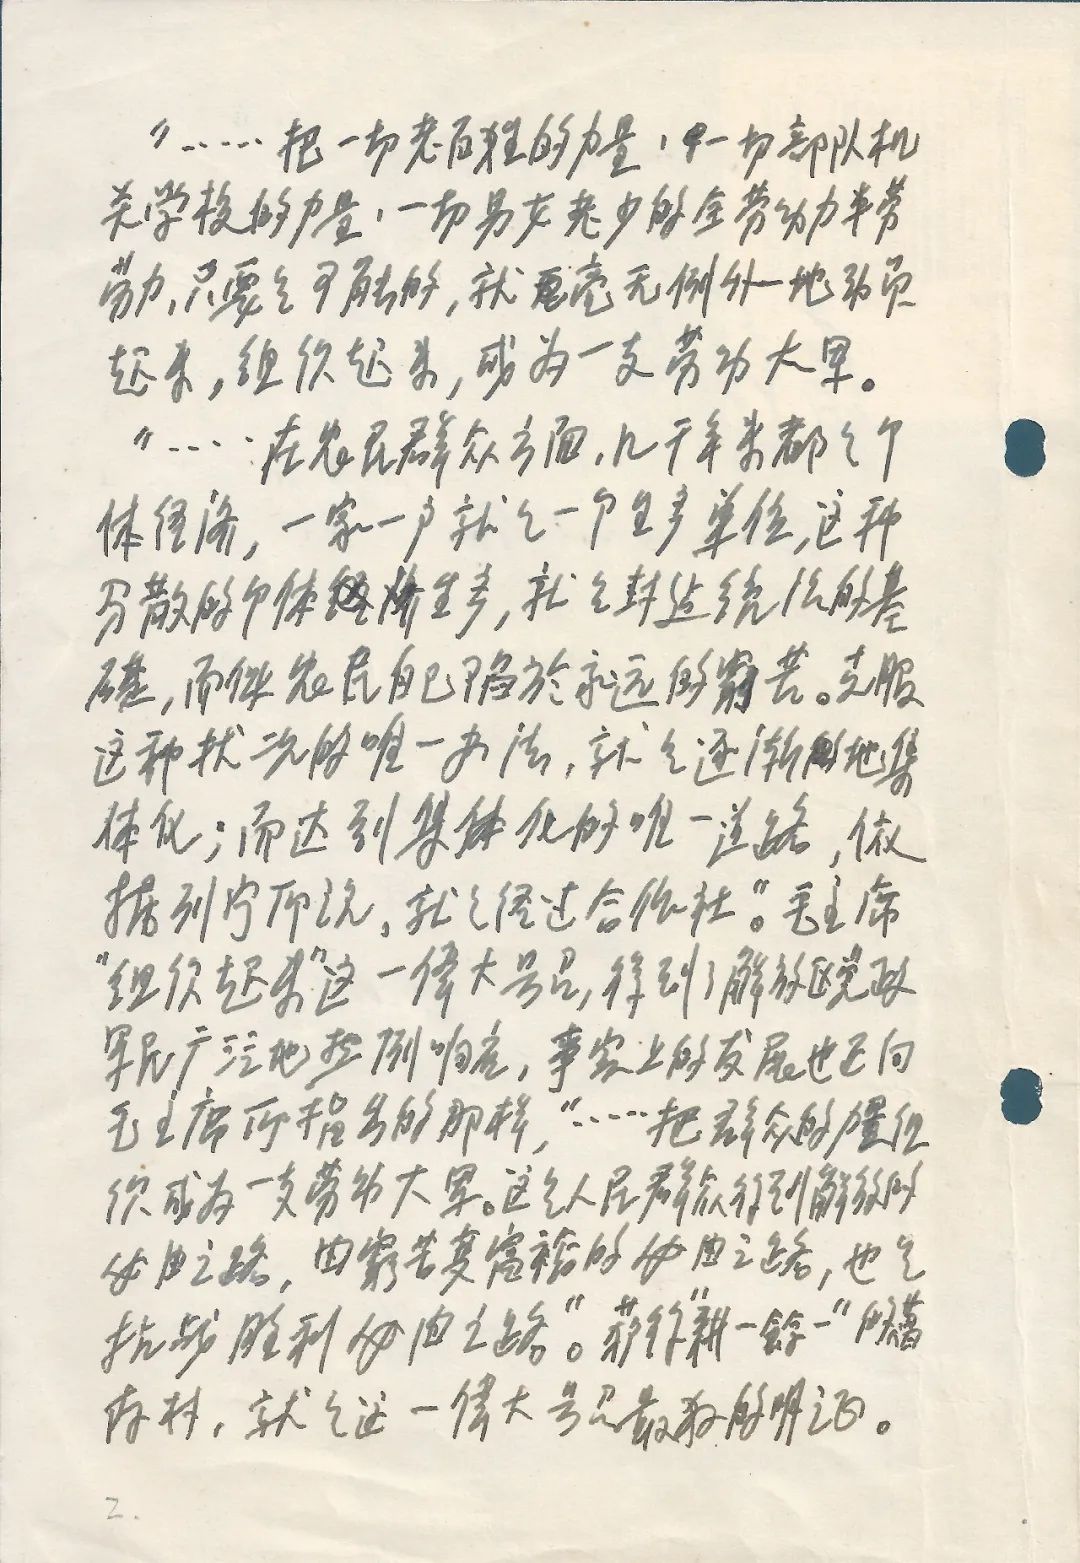 “……把一切老百姓的力量,一切部队机
关学校的力量,一切男女老少的全劳动力半劳
动力,只要是可能的,就要毫无例外地动员
起来,组织起来,成为一支劳动大军。
“……在农民群众方面,几千年来都是个
体经济,一家一户就是一个生产单位,这种
分散的个体生产,就是封建统治的基
础,而使农民自己陷于永远的穷苦。克服
这种状况的唯一办法,就是逐渐地集
体化;而达到集体化的唯一道路,依
据列宁所说,就是经过合作社”。毛主席
“组织起来”这一伟大号召,得到了解放区党政
军民广泛地热烈响应,事实上的发展也正向
毛主席所指出的那样,“……把群众的力量组
织成为一支劳动大军。这是人民群众得到解放的
必由之路,由穷苦变富裕的必由之路,也是
抗战胜利必由之路”。获得“耕一余一”的
村,就是这一伟大号召最好的明证。
2.